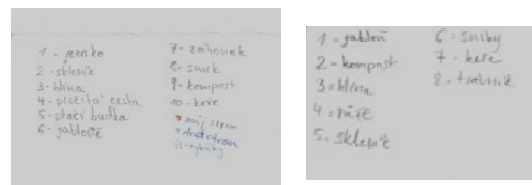 1 - jezírko
2 - skleník
3 - hlína
4 - písčitá cesta
5 - ptačí budka
6 - jabloně
7 - záhonek
8 - smrk
9 - kompost
10 - keře
můj strom
11 - rybičky
1 - jabloň
2 - kompost
3 - hlína
4 - růže
5 - skleník
6 - smrky
7 - keře
8 - trávník